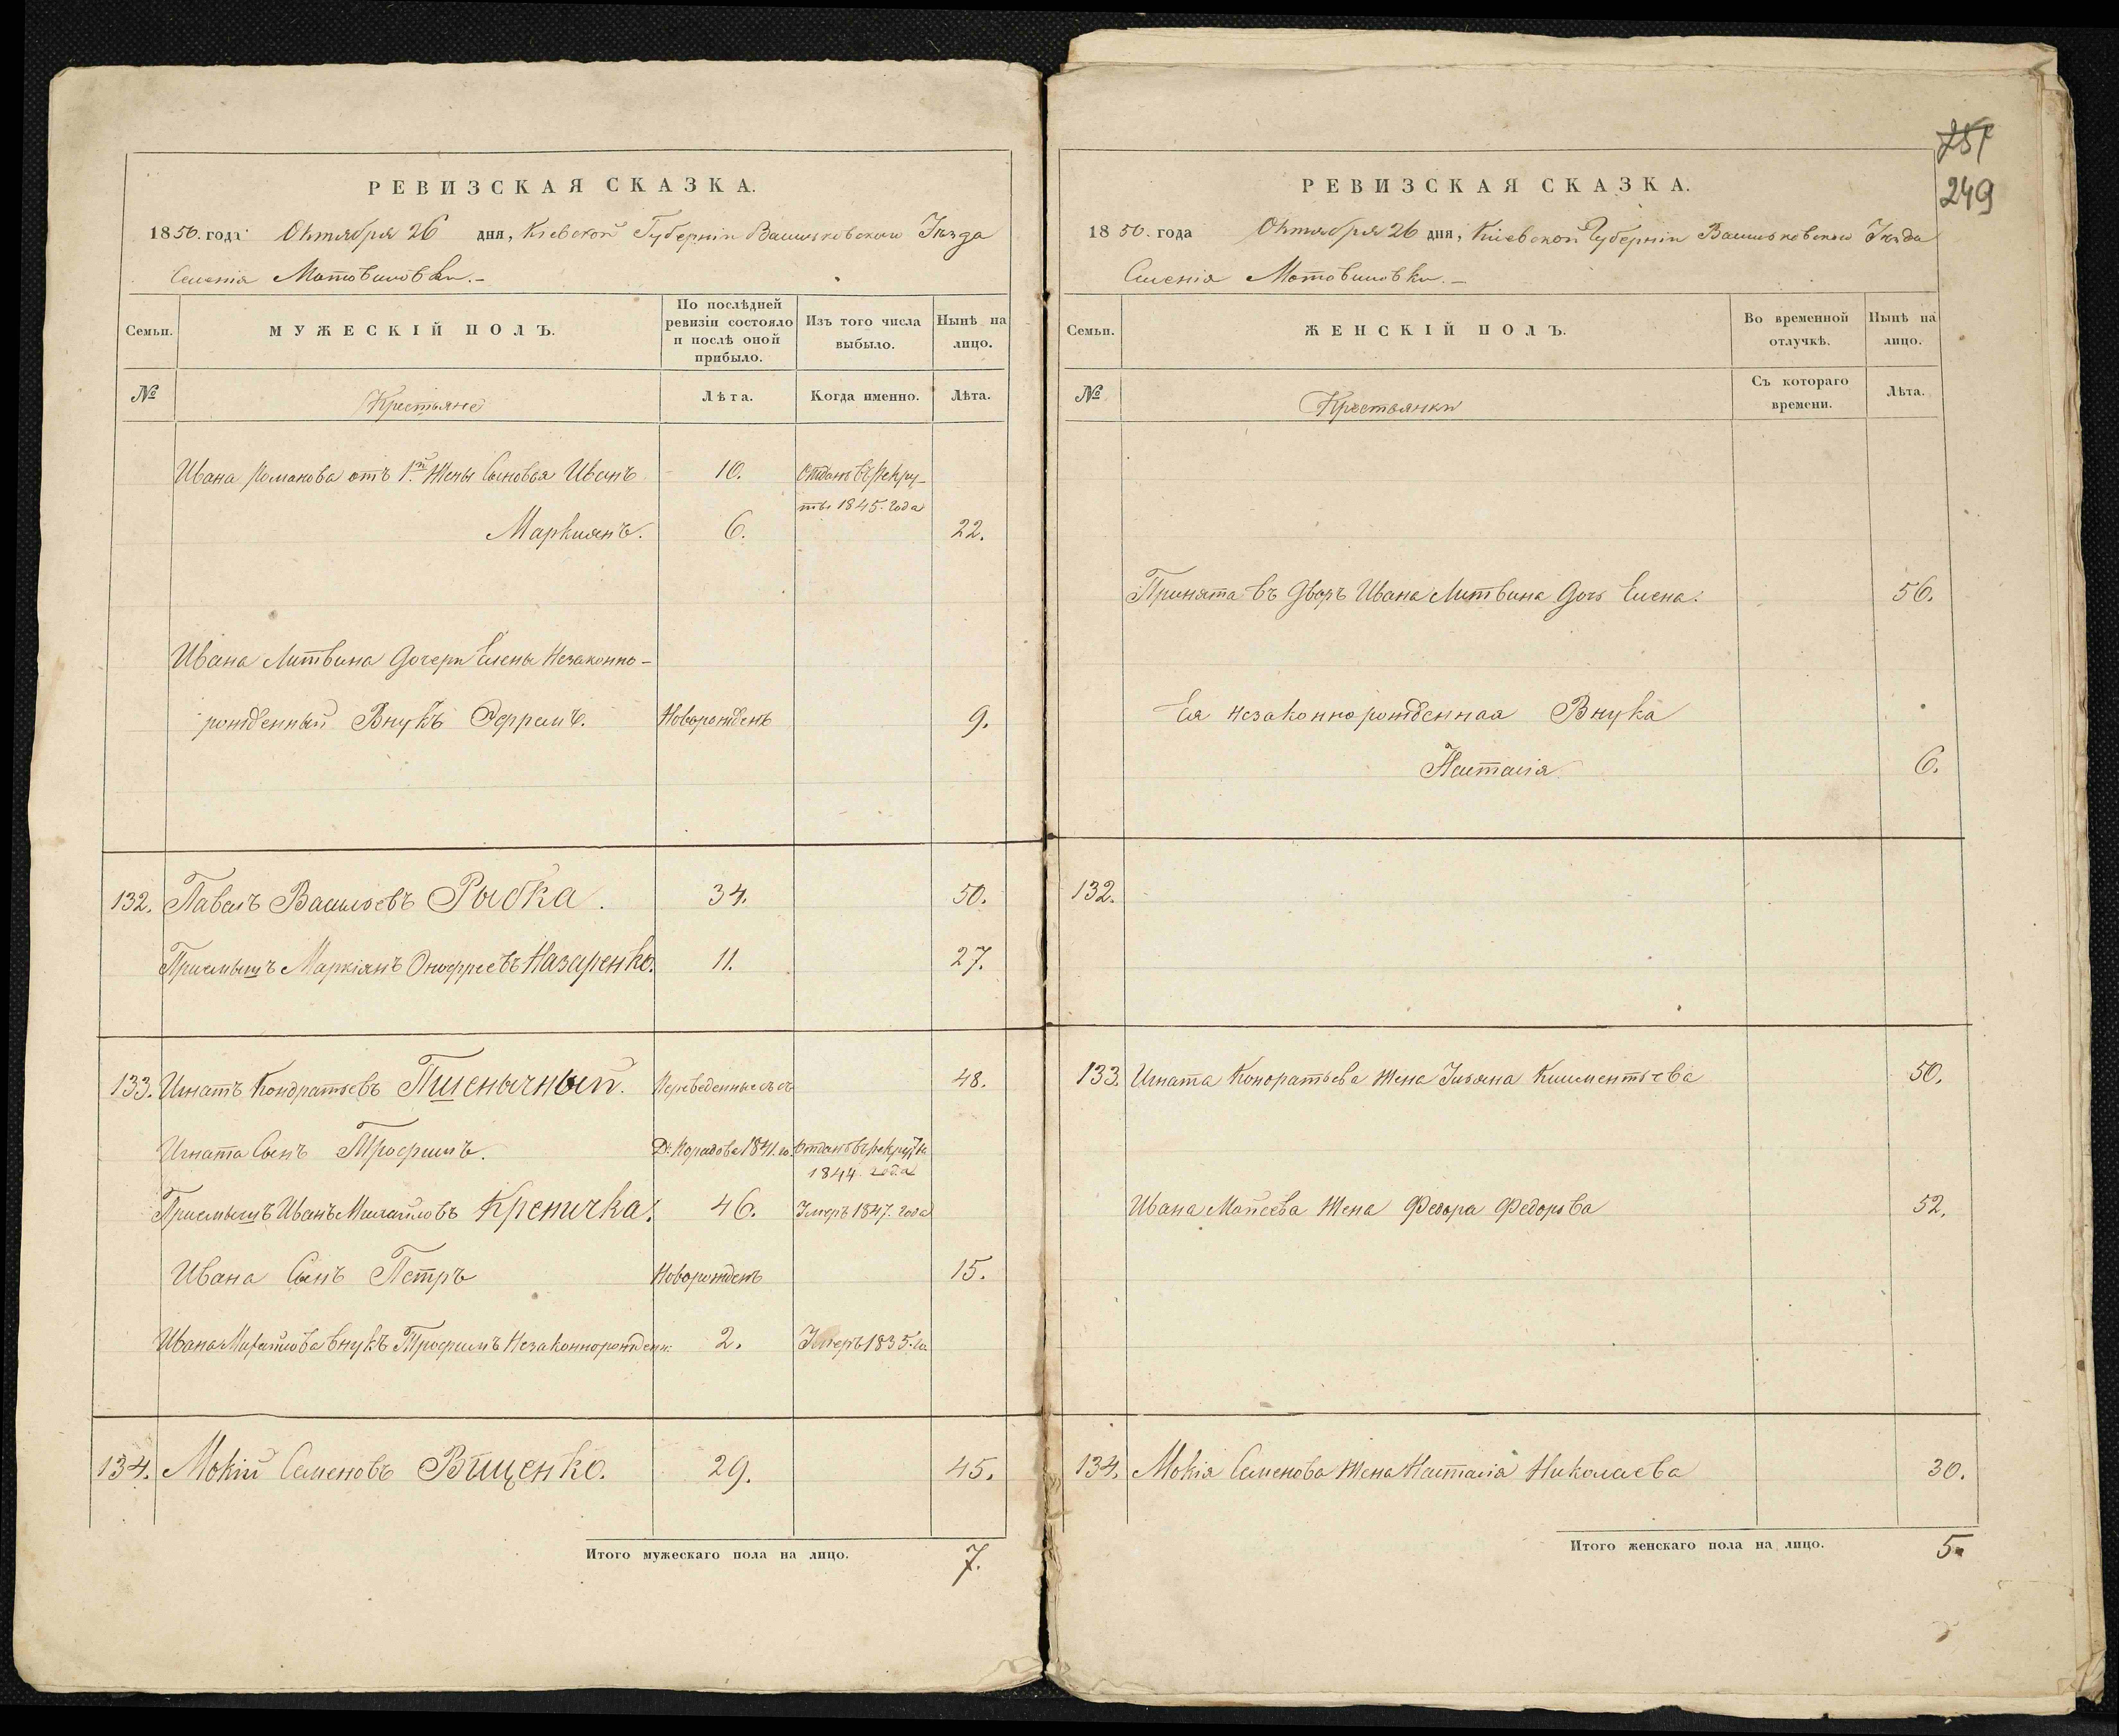 РЕВИЗСКАЯ СКАЗКА.
1850. года Октября 26 дня, Кіевской Губерніи Васильковскаго Уѣзда
Селенія Мотовиловки.-
Семьи.
МУЖЕСКІЙ ПОЛЪ.
По послѣдней ревизіи состояло и послѣ оной прибыло.
Изъ того числа выбыло.
Нынѣ на лицо.
№
Крестьяне
Лѣта.
Когда именно.
Лѣта.
Ивана Романова отъ 1й Жены Сыновья Иванъ 10. Отданъ въ рекру-
ты 1845. года
Маркиянъ. 6. 22.
Ивана Литвина Дочери Елены Незаконно-
рожденный Внукъ Ефремъ. Новорожденъ 9.
132. Павелъ Васильевъ Рыбка. 34. 50.
Приемышъ Маркіянъ Онофреевъ Назаренко. 11. 27.
133. Игнатъ Кондратьевъ Пшеничный. Переведенные съ 48.
Игната Сынъ Трофимъ. Д. 1841. го. Отданъ въ рекруты
1844. года
Приемышъ Иванъ Михайловъ Креничка. 46. Умеръ 1847. года
Ивана Сынъ Петръ Новорожденъ 15.
Ивана Михайлова Внукъ Трофимъ Незаконнорожден: 2. Умеръ 1835. го
134. Мокій Семеновъ Вищенко. 29. 45.
Итого мужескаго пола на лицо. 7.
251
249
РЕВИЗСКАЯ СКАЗКА.
1850. года Октября 26 дня, Кіевской Губерніи Васильковскаго Уѣзда
Селенія Мотовиловки.-
Семьи.
ЖЕНСКІЙ ПОЛЪ.
Во временной отлучкѣ.
Нынѣ на лицо.
№
Крестьянки
Съ котораго времени.
Лѣта.
Принята въ Дворъ Ивана Литвина Дочь Елена. 56.
Ея незаконнорожденная Внука
Наталія 6.
132.
133. Игната Кондратьева Жена Ульяна Климентьева 50.
Ивана Жена Федора Федорова 52.
134. Мокія Семенова Жена Наталія Николаева 30.
Итого женскаго пола на лицо. 5.